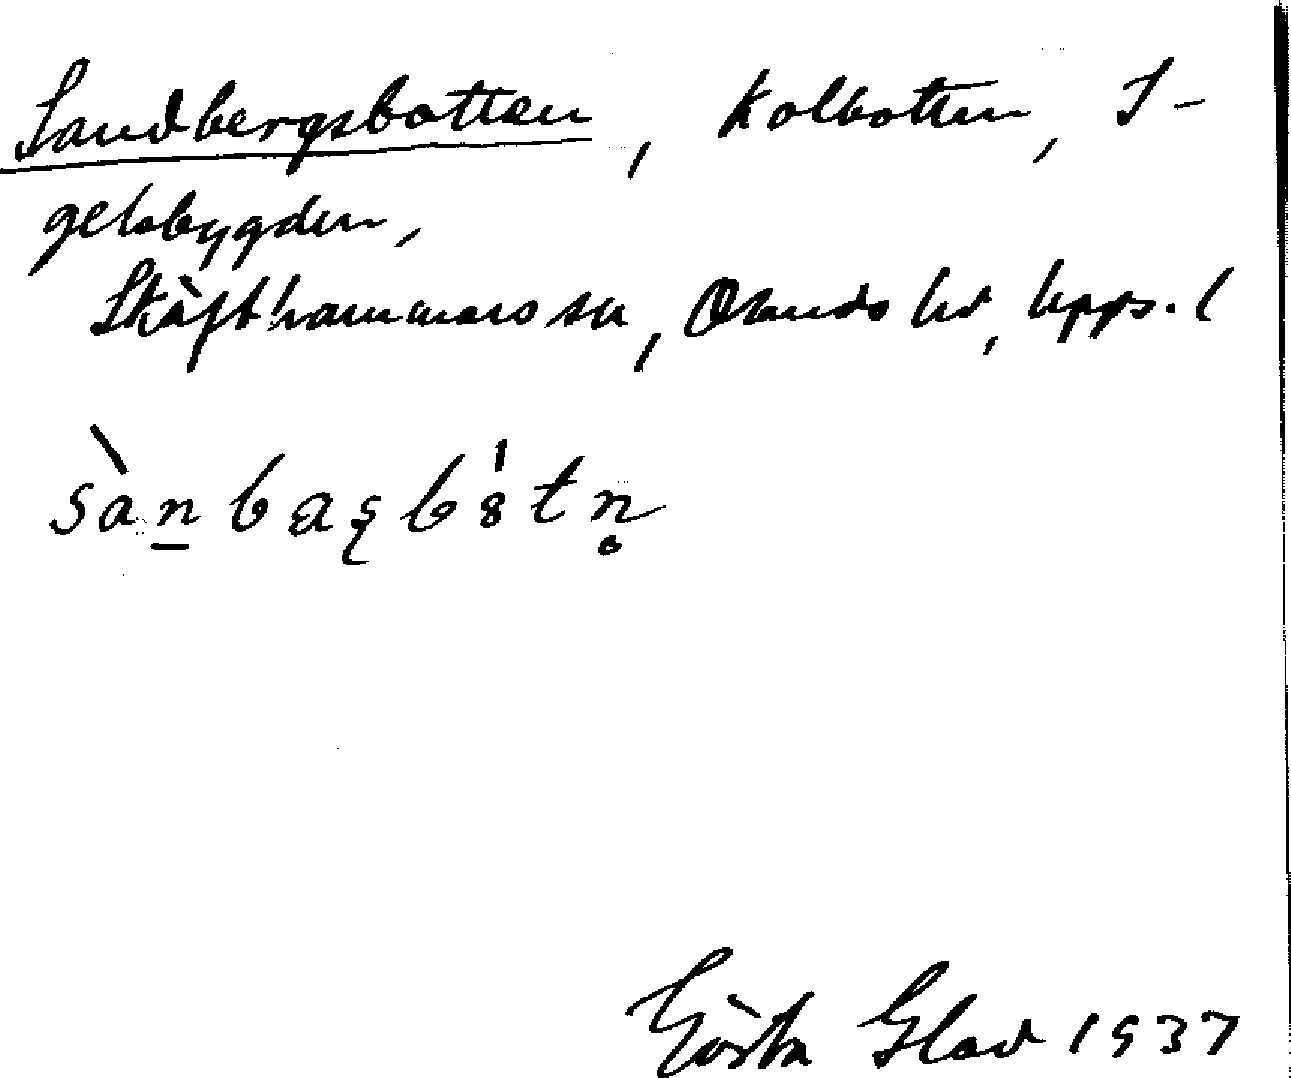 Sandbergsbotten, Kolbotten, I-
gelsbygden,
Skäfthammars sn, Olands hd, Upps. l
Gösta Glad 1937